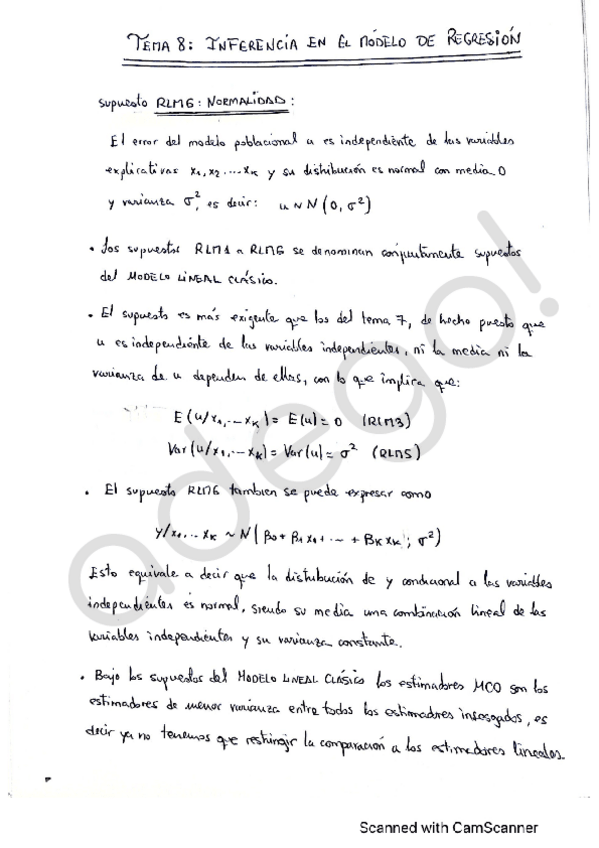 TEMA 8: INFERENCIA EN EL MODELO DE REGRESIÓN
supuesto RLM6: NORMALIDAD:
El error del modelo poblacional u es independiente de las variables
explicativas x₁, x₂ .... xₖ y su distribución es normal con media 0
y varianza σ², es decir: u ~ N(0, σ²)
• Los supuestos RLM1 a RLM6 se denominan conjuntamente supuestos
del MODELO LINEAL CLÁSICO.
• El supuesto es más exigente que los del tema 7, de hecho puesto que
u es independiente de las variables independientes, ni la media ni la
varianza de u dependen de ellas, con lo que implica que:
E(u/x₁, ... xₖ) = E(u) = 0 (RLM3)
Var(u/x₁, ... xₖ) = Var(u) = σ² (RLM5)
• El supuesto RLM6 tambien se puede expresar como
y/x₁, ... xₖ ~ N(β₀ + β₁x₁ + ... + βₖxₖ ; σ²)
Esto equivale a decir que la distribución de y condicional a las variables
independientes es normal, siendo su media una combinación lineal de las
variables independientes y su varianza constante.
• Bajo los supuestos del MODELO LINEAL CLÁSICO los estimadores MCO son los
estimadores de menor varianza entre todos los estimadores insesgados, es
decir ya no tenemos que restringir la comparación a los estimadores lineales.
adego!
Scanned with CamScanner